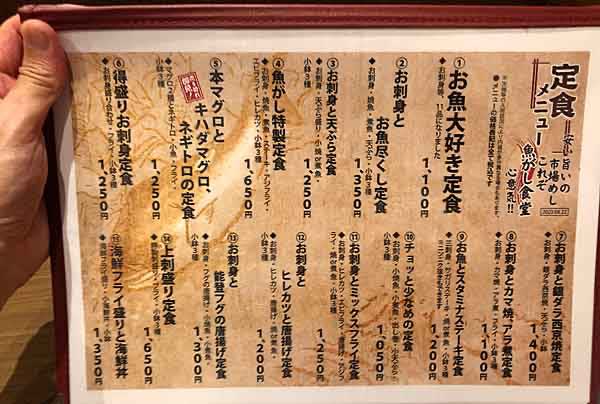 定食
メニュー
安い旨いの
市場めし
これぞ
魚がし食堂
心意気!!
2023.08.22
●メニューの価格表記は全て税込です
① お魚大好き定食
◆お刺身等、11品になりました
1,100円
② お刺身と
お魚尽くし定食
◆お刺身・焼魚・煮魚・天ぷら・小鉢3種
1,350円
③ お刺身と天ぷら定食
◆お刺身・天ぷら盛り・小焼or煮魚・
小鉢3種
1,250円
④ 魚がし特製定食
◆お刺身・焼魚・煮魚・ステーキ・アジフライ・
エビフライ・ヒレカツ・小鉢3種
1,650円
⑤ 本マグロと
キハダマグロ、
ネギトロの定食
◆マグロ2種とネギトロ・小魚・フライ・
小鉢3種
1,250円
⑥ 得盛りお刺身定食
◆お刺身盛り合わせ・フライ・小鉢3種
1,250円
⑦ お刺身と銀ダラ西京焼定食
◆お刺身・銀ダラ西京焼・天ぷら・小鉢
1,400円
⑧ お刺身とカマ焼、アラ煮定食
◆お刺身・カマ焼・アラ煮・フライ・小鉢3種
1,100円
⑨ お魚とスタミナステーキ定食
1,200円
⑩ チョッと少なめの定食
◆お刺身・小焼魚・小煮魚・出し巻・小天ぷら・
小鉢
1,050円
⑪ お刺身とミックスフライ定食
◆お刺身・ヒレカツ・エビフライ・唐揚げ・アジフ
ライ・焼or煮魚・小鉢3種
1,250円
⑫ お刺身と
ヒレカツと唐揚げ定食
◆お刺身・ヒレカツ・唐揚げ・焼or煮魚・
小鉢3種
1,200円
⑬ お刺身と
能登フグの唐揚げ定食
◆お刺身・フグの唐揚げ・小焼魚・小煮魚・
小鉢3種
1,200円
⑭ 上刺盛り定食
◆上刺し盛り・フライ・小鉢3種
1,650円
⑮ 海鮮フライ盛りと海鮮丼
◆海鮮フライ盛り・小海鮮丼・小鉢
1,350円